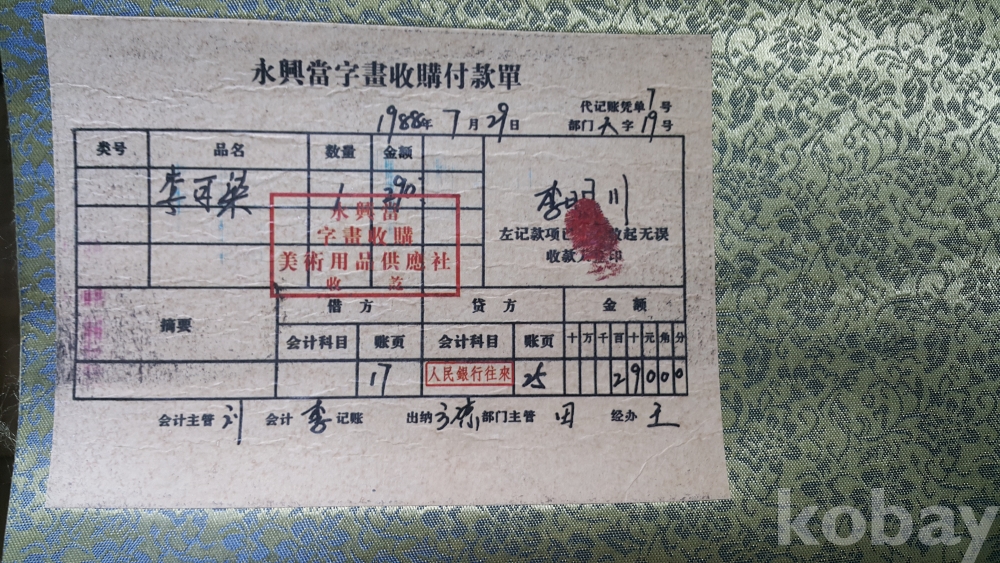 永興當字畫收購付款單
代记账凭单 7 号
1988年 7 月 29 日 部门 天 字 19 号
类号 品名 数量 金额
李可染 1 290
永興當
字畫收購
美術用品供應社
收 讫
李 川
左记款项已 收起无误
收款人 印
摘要 借方 贷方 金额
会计科目 账页 会计科目 账页 十 万 千 百 十 元 角 分
17 人民銀行往來 25 2 9 0 0 0
会计主管 刘 会计 李 记账 出纳 部门主管 田 经办 王
kobay